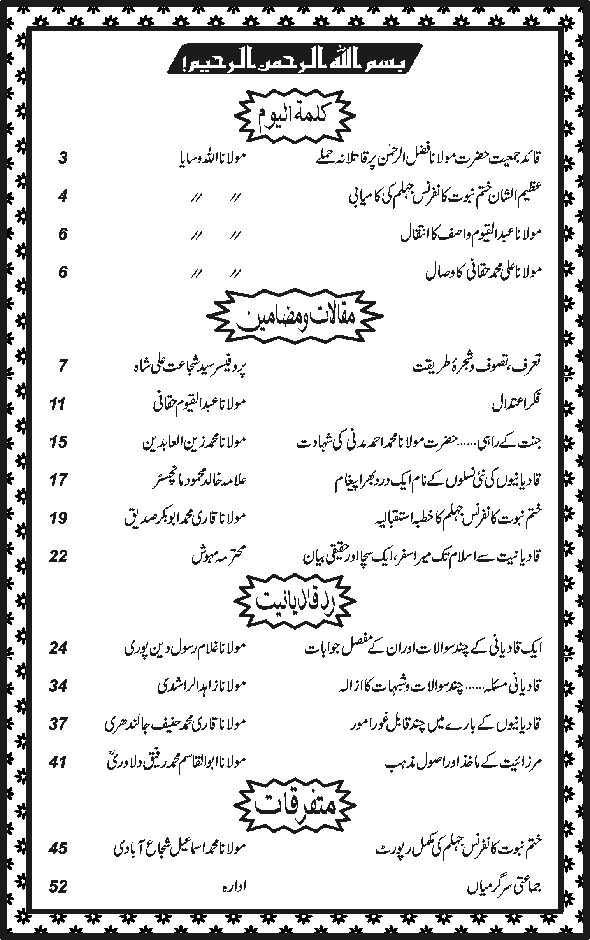 بسم اللہ الرحمن الرحیم!
کلمۃ الیوم
قائد جمعیت حضرت مولانا فضل الرحمٰن پر قاتلانہ حملے مولانا اللہ وسایا 3
عظیم الشان ختم نبوت کانفرنس جہلم کی کامیابی // // 4
مولانا عبدالقیوم واصف کا انتقال // // 6
مولانا علی محمد حقانی کا وصال // // 6
مقالات و مضامین
تعرف، تصوف و شجرۂ طریقت پروفیسر سید شجاعت علی شاہ 7
فکر اعتدال مولانا عبدالقیوم حقانی 11
جنت کے راہی...... حضرت مولانا محمد احمد مدنی کی شہادت مولانا محمد زین العابدین 15
قادیانیوں کی نئی نسلوں کے نام ایک درد بھرا پیغام علامہ خالد محمود مانچسٹر 17
ختم نبوت کانفرنس جہلم کا خطبہ استقبالیہ مولانا قاری محمد ابوبکر صدیق 19
قادیانیت سے اسلام تک میرا سفر، ایک سچا اور حقیقی بیان محترمہ مہوش 22
رد قادیانیت
ایک قادیانی کے چند سوالات اور ان کے مفصل جوابات مولانا غلام رسول دین پوری 24
قادیانی مسئلہ...... چند سوالات و شبہات کا ازالہ مولانا زاہد الراشدی 34
قادیانیوں کے بارے میں چند قابل غور امور مولانا قاری محمد حنیف جالندھری 37
مرزائیت کے ماخذ اور اصول مذہب مولانا ابوالقاسم محمد رفیق دلاوریؒ 41
متفرقات
ختم نبوت کانفرنس جہلم کی مکمل رپورٹ مولانا محمد اسماعیل شجاع آبادی 45
جماعتی سرگرمیاں ادارہ 52